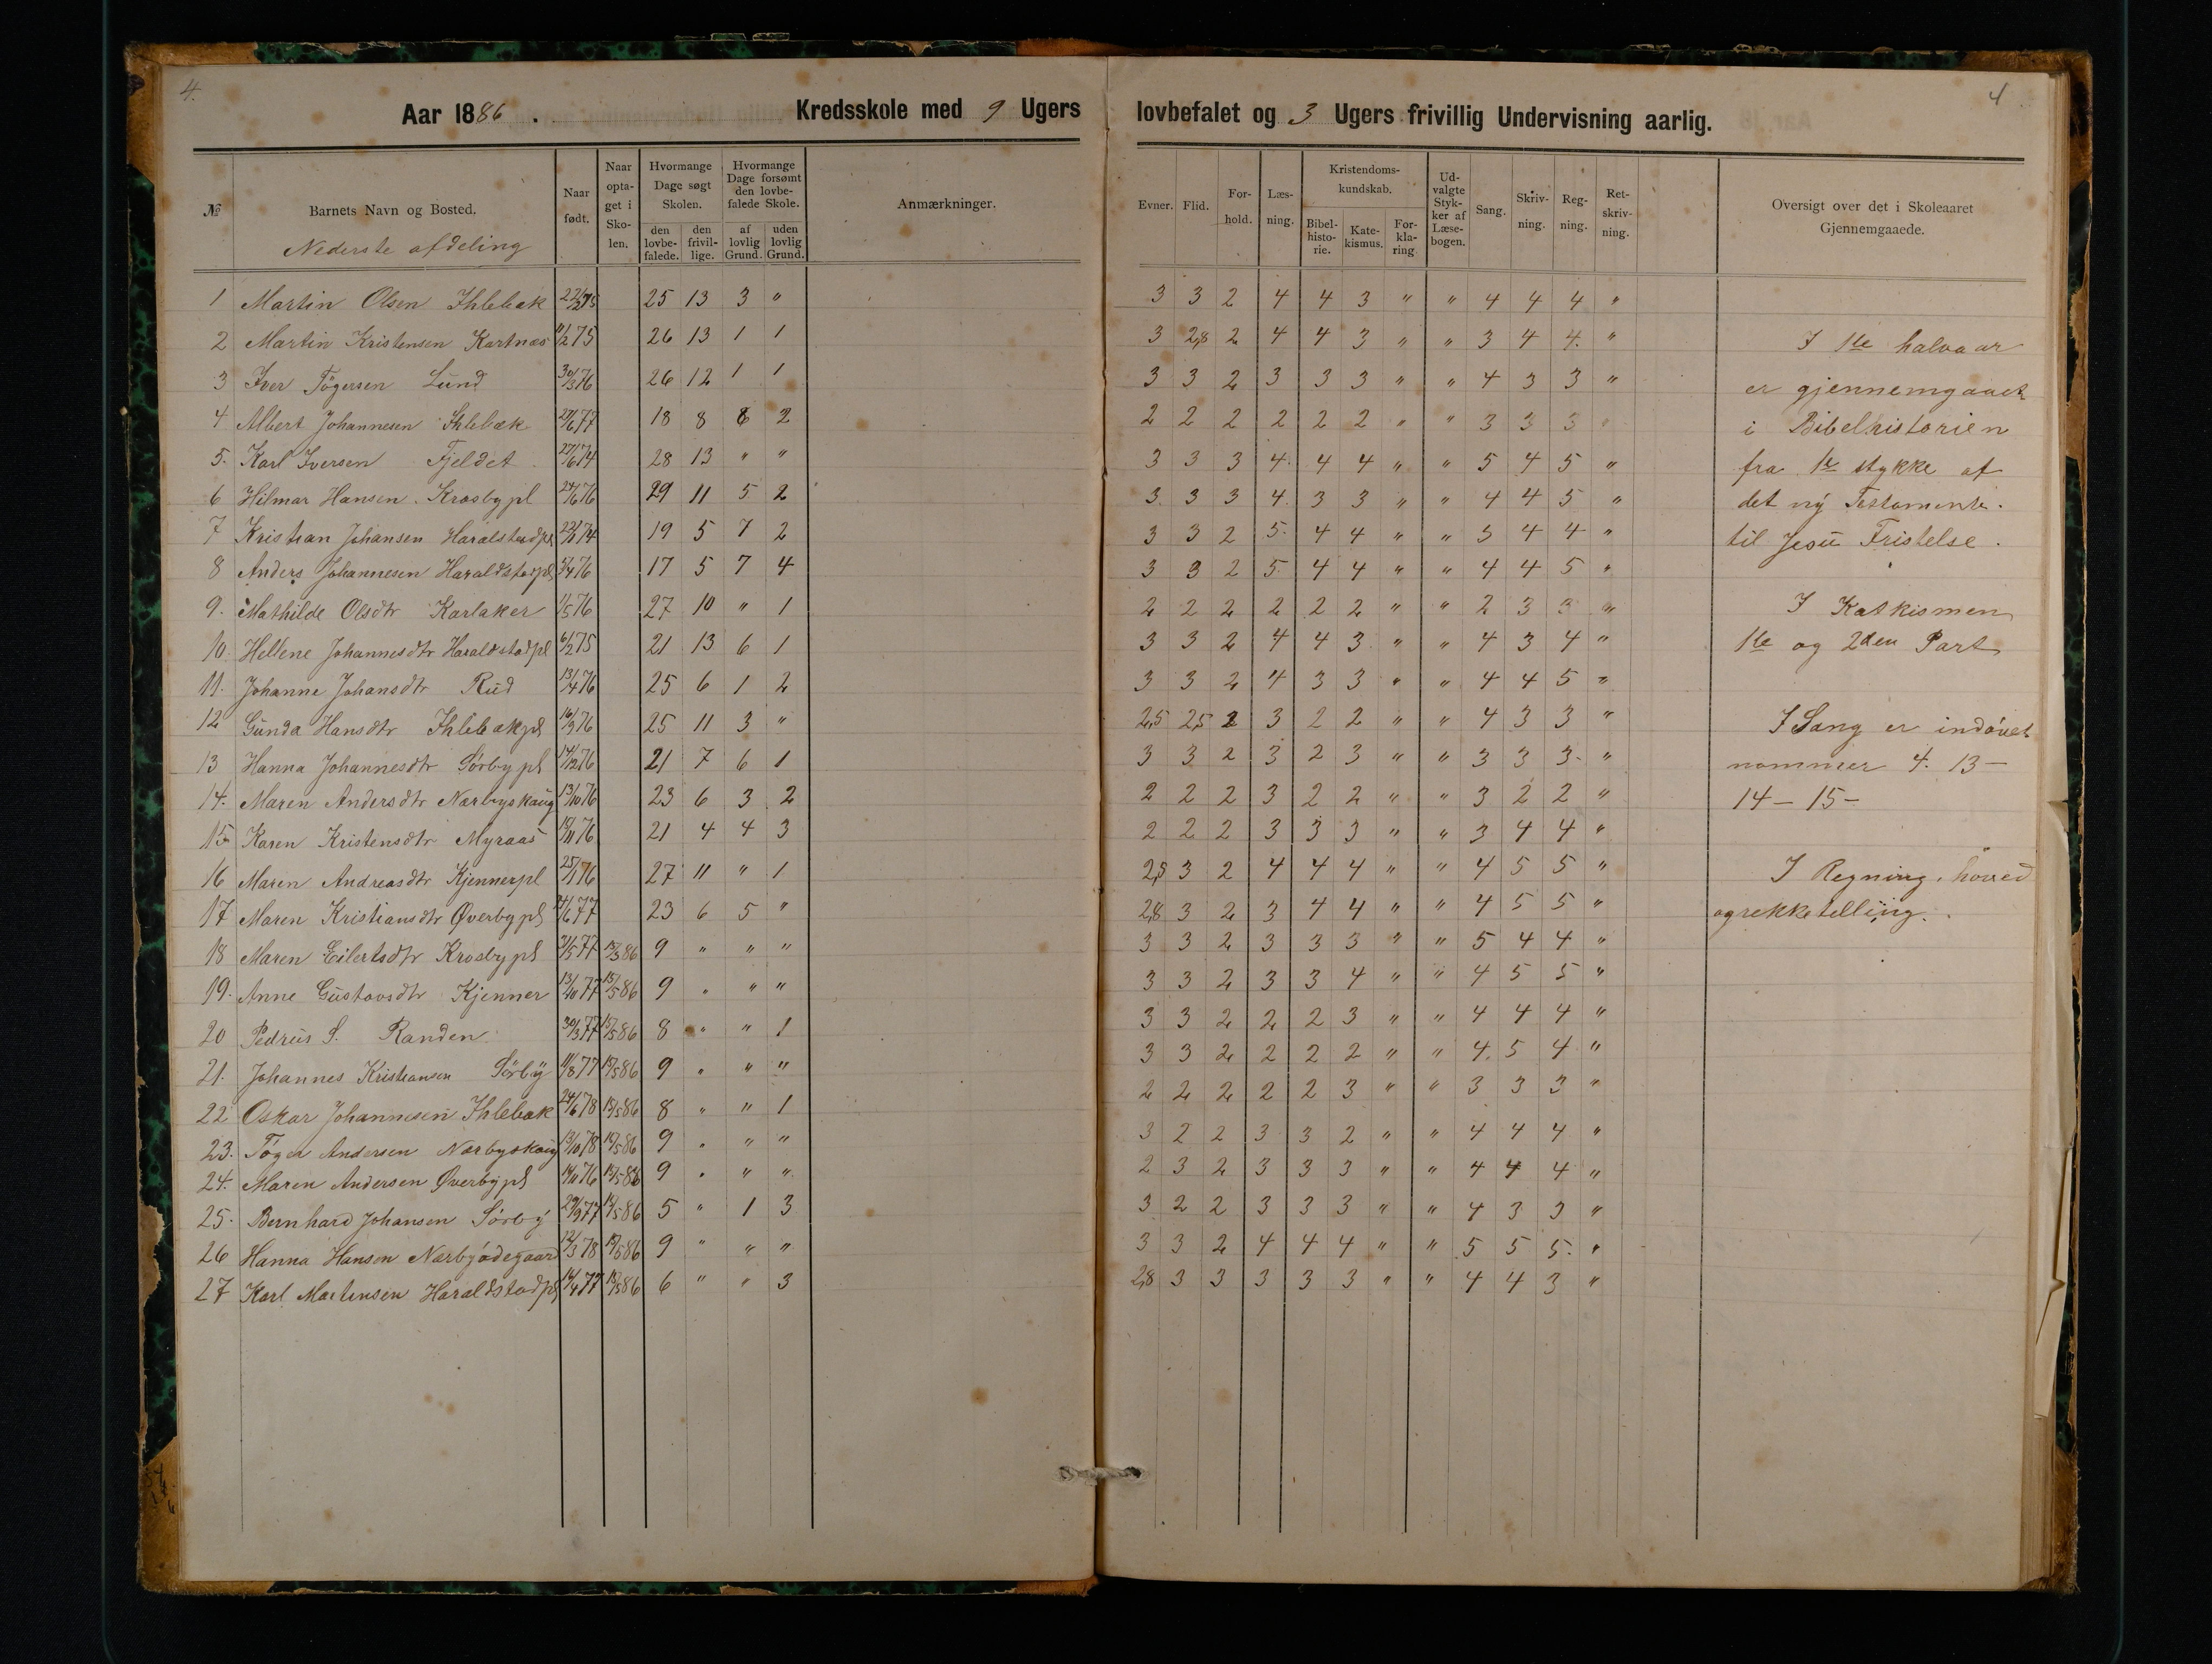 4.
Aar 1886. Kredsskole med 9 Ugers lovbefalet og 3 Ugers frivillig Undervisning aarlig.
4
№ Barnets Navn og Bosted. Naar født. Naar optaget i Skolen. Hvormange Dage søgt Skolen. den lovbefalede. den frivillige. Hvormange Dage forsømt den lovbefalede Skole. af lovlig Grund. uden lovlig Grund. Anmærkninger. Evner. Flid. Forhold. Læsning. Kristendomskundskab. Bibelhistorie. Katekismus. Forklaring Udvalgte Stykker af Læsebogen. Sang. Skrivning. Regning. Retskrivning. Oversigt over det i Skoleaaret Gjennemgaaede.
Nederste afdeling
1 Martin Olsen Ihlebæk 25 13 3 " 3 3 2 4 4 3 " " 4 4 4 "
2 Martin Kristensen Kortnæs 11/2 75 26 13 1 1 3 2,8 2 4 4 3 " " 3 4 4. "
3 Iver Tögersen Lund 30/3 76 26 12 1 1 3 3 2 3 3 3 " " 4 3 3 "
4 Albert Johannesen Ihlebæk 27/6 77 18 8 8 2 2 2 2 2 2 2 " " 3 3 3 "
5. Karl Iversen Fjeldet 27/6 74 28 13 " " 3 3 3 4. 4 4 " " 5 4 5 "
6 Hilmar Hansen Krosbypl 24/6 76 29 11 5 2 3 3 3 4. 3 3 " " 4 4 5 "
7 Kristian Johansen Haralstadpl 19 5 7 2 3 3 2 5. 4 4 " " 3 4 4 "
8 Anders Johannesen Haraldstadpl 17 5 7 4 3 3 2 5 4 4 " " 4 4 5 "
9. Mathilde Olsdtr Karlaker 1/5 76 27 10 " 1 2 2 2 2 2 2 " " 2 3 3 "
10. Hellene Johannesdtr Haraldstadpl 6/2 75 21 13 6 1 3 3 2 4 4 3 " " 4 3 4 "
11. Johanne Johansdtr Rud 13/4 76 25 6 1 2 3 3 2 4 3 3 " " 4 4 5 "
12 Gunda Hansdtr Ihlebækpl 16/9 76 25 11 3 " 2,5 2,5 2 3 2 2 " " 4 3 3 "
13 Hanna Johannesdtr Sörbypl 14/12 76 21 7 6 1 3 3 2 3 2 3 " " 3 3 3. "
14. Maren Andersdtr Nærbyskaug 13/10 76 23 6 3 2 2 2 2 3 2 2 " " 3 2 2 "
15 Karen Kristensdtr Myraas 21 4 4 3 2 2 2 3 3 3 " " 3 4 4 "
16 Maren Andreasdtr Kjennerpl 25/1 76 27 11 " 1 2,5 3 2 4 4 4 " " 4 5 5 "
17 Maren Kristiansdtr Øverbypl 23 6 5 " 2,8 3 2 3 4 4 " " 4 5 5 "
18 Maren Eilertsdtr Krosbypl 9 " " " 3 3 2 3 3 3 " " 5 4 4 "
19. Anne Gustavsdtr Kjenner 9 " " " 3 3 2 3 3 4 " " 4 5 5 "
20 Pedrus S. Randen 30/3 77 8 " " 1 3 3 2 2 2 3 " " 4 4 4 "
21. Johannes Kristiansen Sörby 11/8 77 9 " " " 3 3 2 2 2 2 " " 4. 5 4 "
22 Oskar Johannesen Ihlebæk 24/6 78 8 " " 1 2 2 2 2 2 3 " " 3 3 3 "
23. Töger Andersen Nærbyskaug 13/10 78 9 " " " 3 2 2 3 3 2 " " 4 4 4 "
24. Maren Andersen Øverbypl 9 " " " 2 3 2 3 3 3 " " 4 4 4 "
25. Bernhard Johansen Sörby 29/9 77 5 " 1 3 3 2 2 3 3 3 " " 4 3 3 "
26 Hanna Hansen Nærbyødegaard 12/3 78 9 " " " 3 3 2 4 4 4 " " 5 5 5. "
27 Karl Martensen Haraldstadpl 6 " " 3 2,8 3 3 3 3 3 " " 4 4 3 "
I 1ste halvaar
er gjennemgaaet
i Bibelhistorien
fra 1ste stykke af
det ny Testamente.
til Jesu Fristelse.
I Katkismen
1ste og 2den Part
I Sang er indøvet
nommer 4. 13 -
14 - 15 -
I Regning. hoved
og rekketelling.